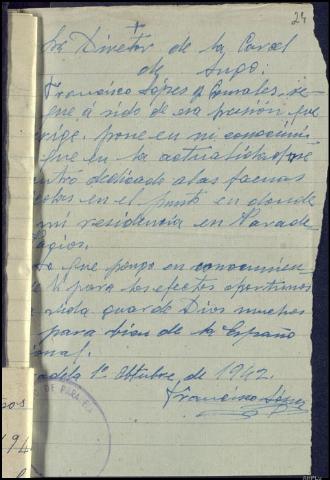 24
Sr. Diretor de la Carcel
de Lugo:
Francisco López y Gonzales, se
que á sido de esa prision que
irige, pone en mi conocimi
que en la actualidad me
entro dedicado a las faenas
colas en el punto en donde
mi residencia en Parade
ragios.
to que pongo en conocimien
de V. para los efectos oportunos
a vida guarde Dios muchos
para bien de la España
ional.
radela 1º Octubre, de 1942.
Francisco López
O DE PARADA
ños
194